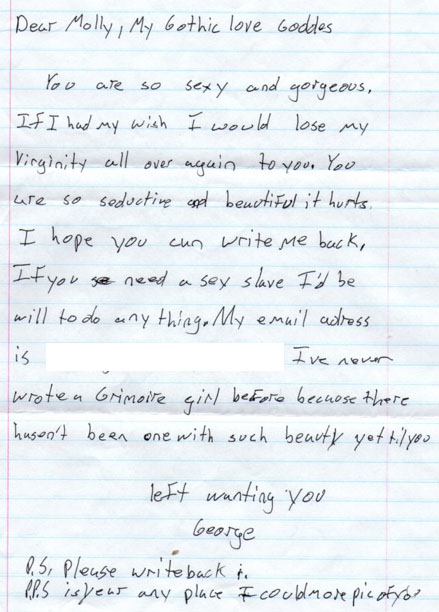 Dear Molly, My Gothic love Goddes
You are so sexy and gorgeous.
If I had my wish I would lose my
Virginity all over again to you. You
are so seductive and beautiful it hurts.
I hope you can write me back,
If you need a sex slave I'd be
will to do any thing. My email adress
is I've never
wrote a Grimoire girl before because there
hasen't been one with such beauty yet til you
left wanting you
George
P.S. Please write back
P.P.S is year any place I could more pic of you